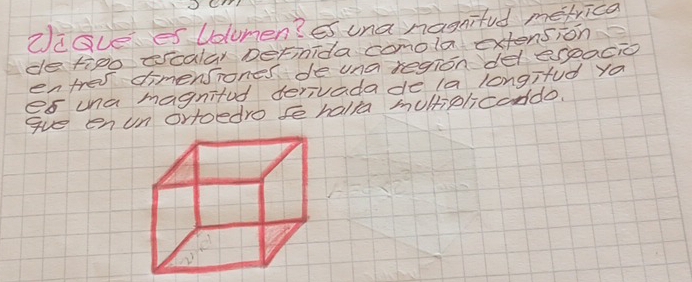 2)¿Qué es Volumen? es una magnitud métrica
de tipo escalar Definida como la extensión
en tres dimensiones de una región del espacio
es una magnitud derivada de la longitud ya
que en un ortoedro se halla multiplicando.